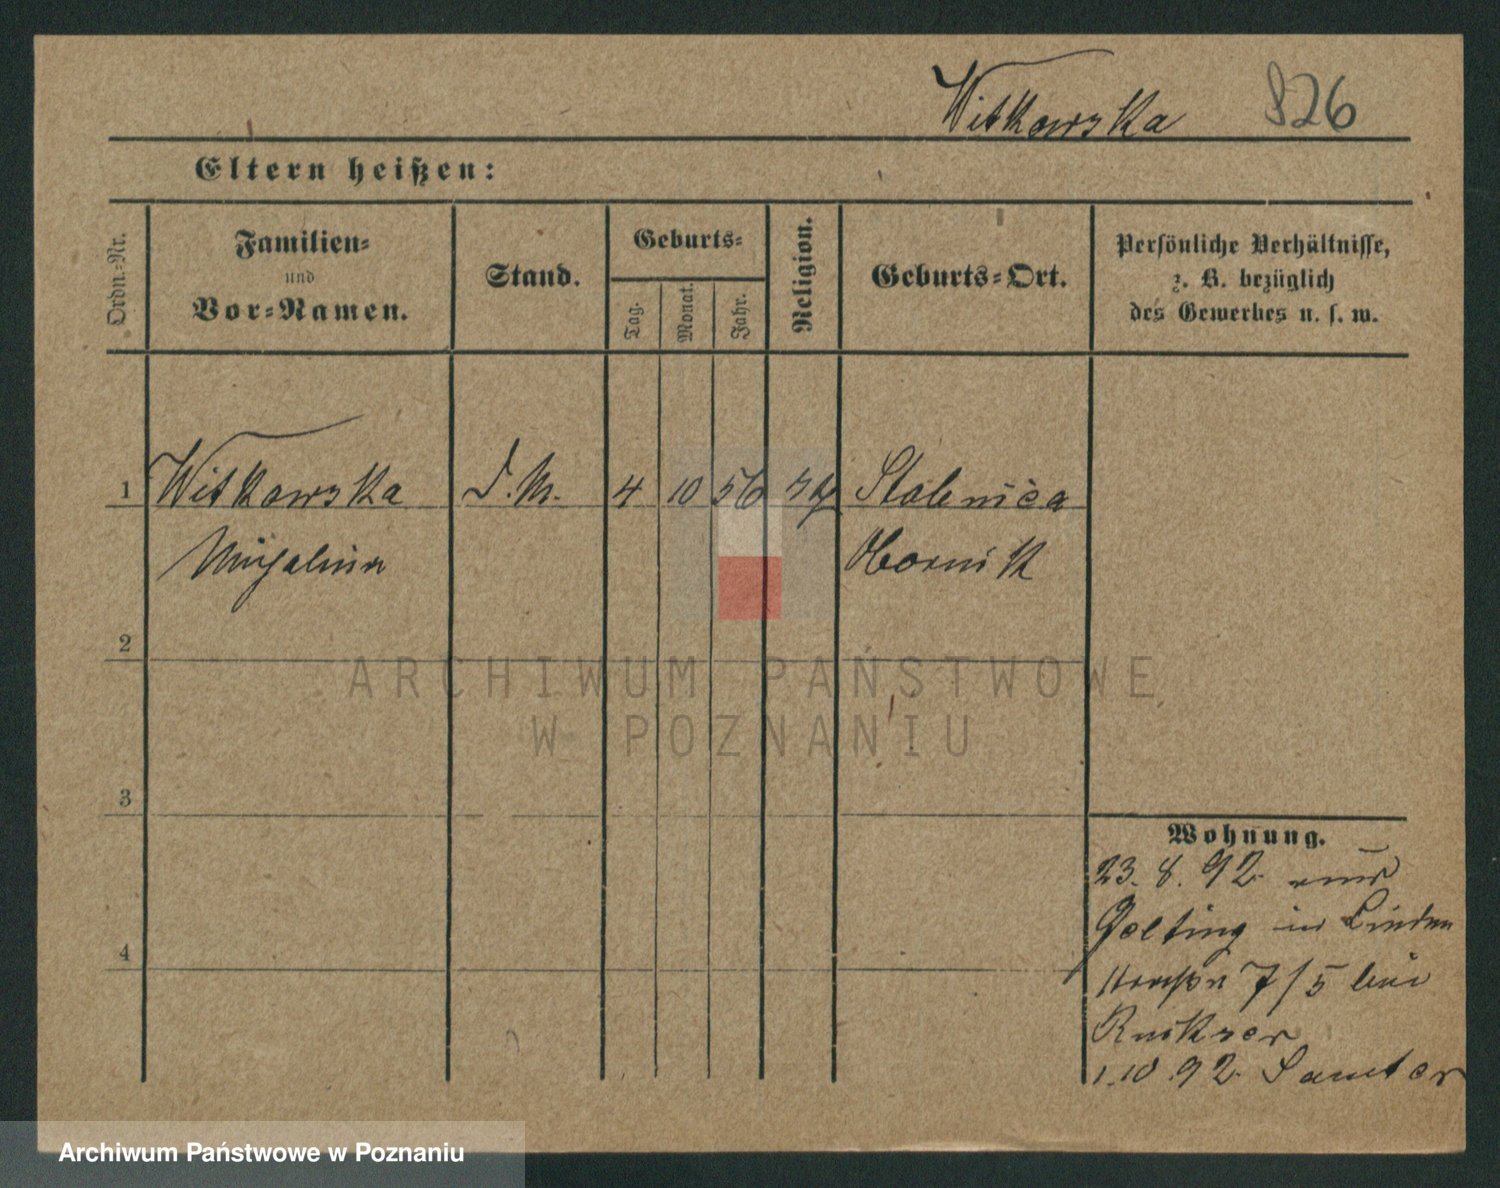 Witkowska 826
Eltern heißen:
Ordn.-Nr.
Familien-
und
Vor-Namen.
Stand.
Geburts-
Tag.
Monat.
Jahr.
Religion.
Geburts-Ort.
Persönliche Verhältnisse,
z. B. bezüglich
des Gewerbes u. s. w.
1 Witkowska D. M. 4 10 56 Stobnica
Michalina Obornik
2
ARCHIWUM PAŃSTWOWE
W POZNANIU
3
4
Wohnung.
23. 8. 92. aus
in Linden
straße 7/5 bei
1. 10. 92. Samter
Archiwum Państwowe w Poznaniu